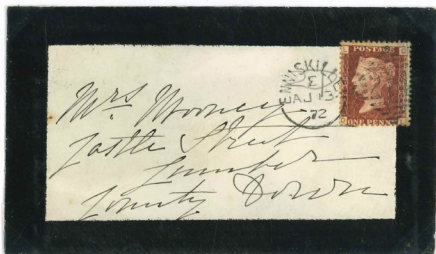 POSTAGE
ONE PENNY
ENNISKILLEN
E
AU 13
72
Mrs. Mooney
Castle Street
Cumber
County Down